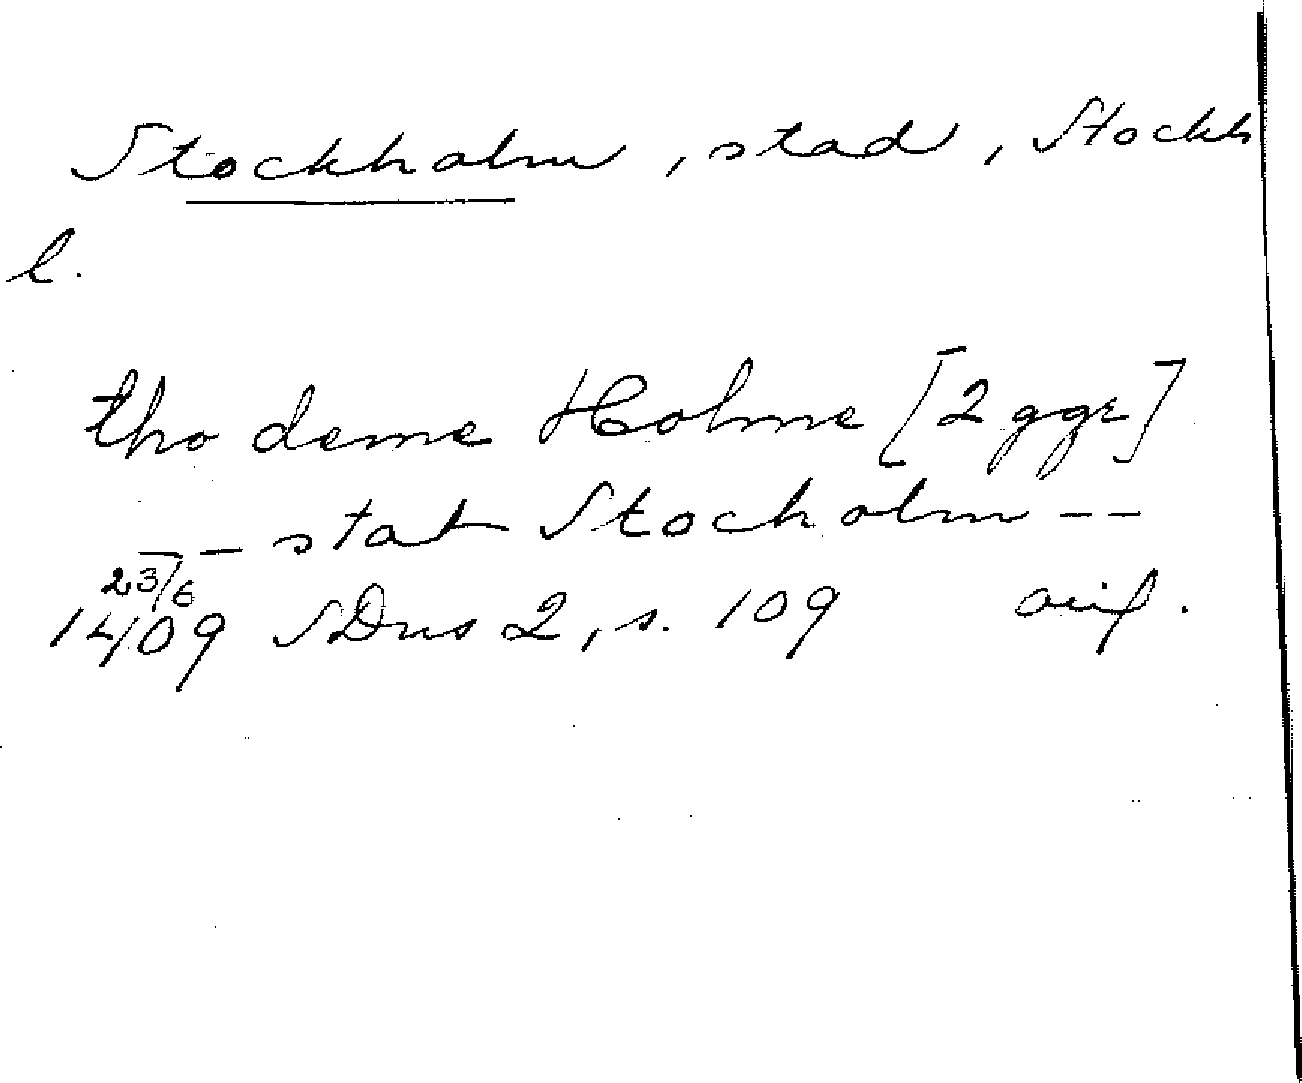 Stockholm, stad, Stockh
l.
tho deme Holme [2 ggr]
-- stat Stocholm --
23/6
1409 SDns 2, s. 109 avf.